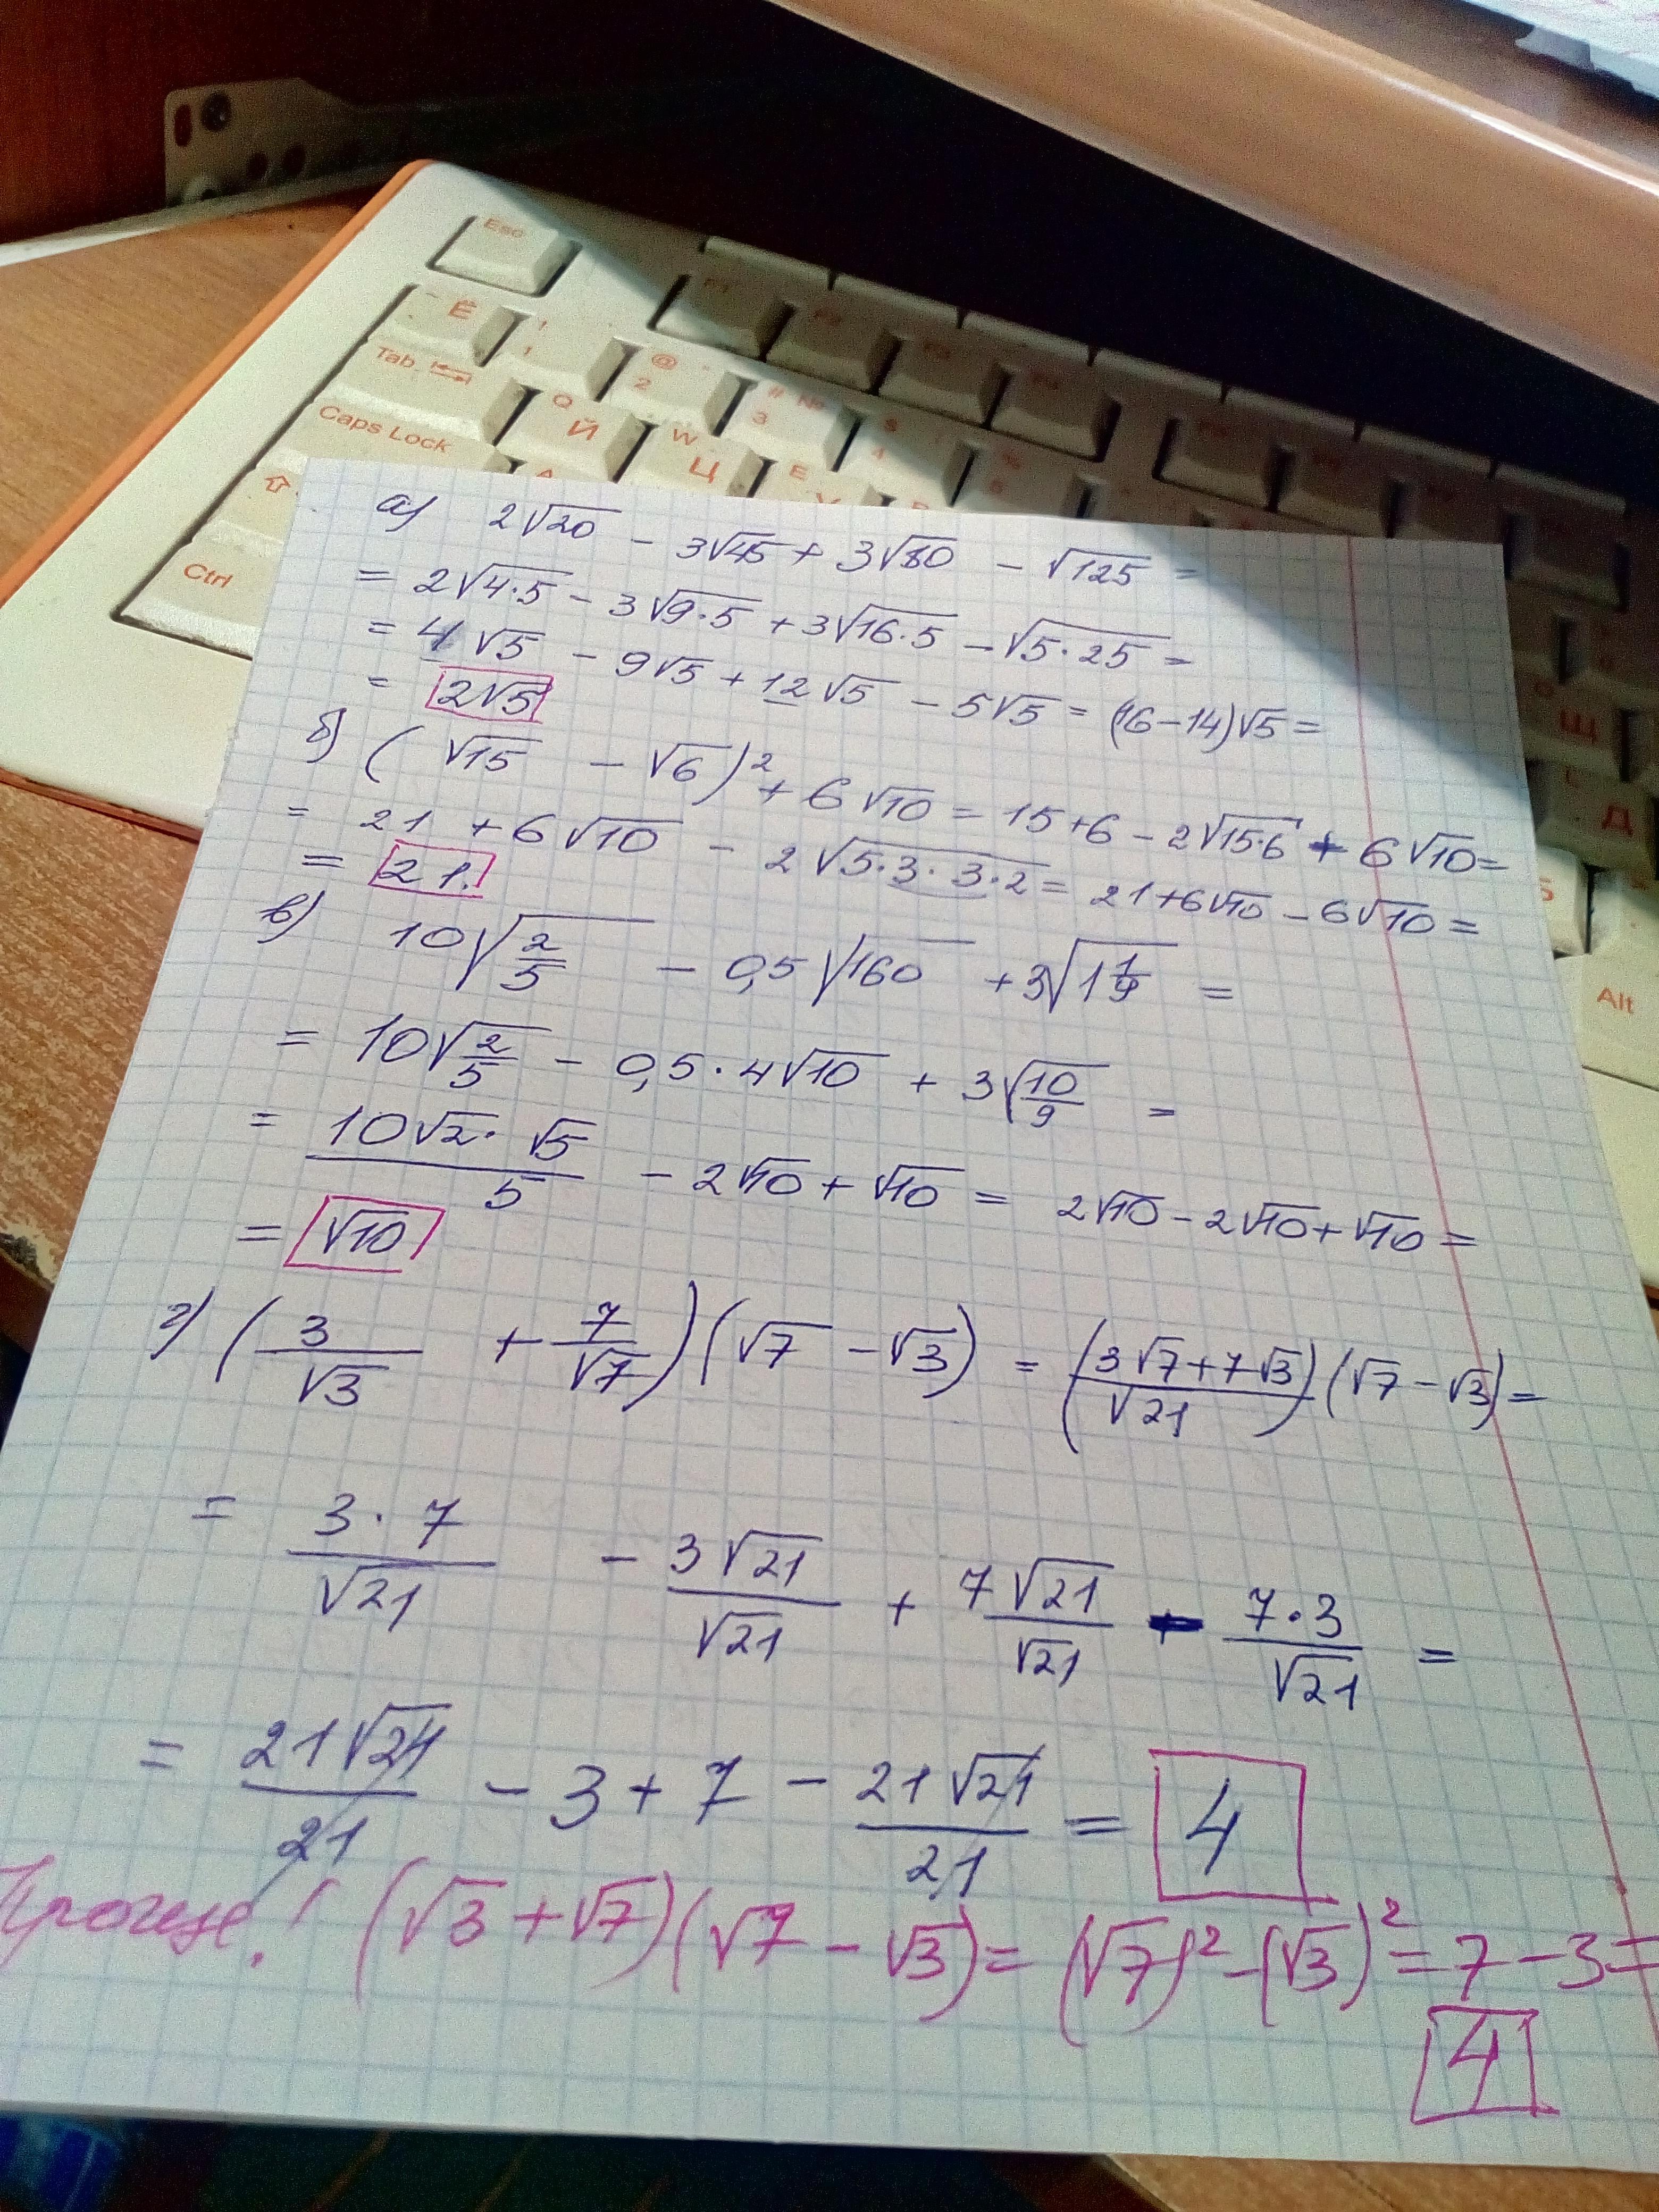 Esc
F1 F2 F3 F4
~ Ё ! 1 @ 2 # № 3 $ 4 % 5
Tab Q Й W Ц E У
Caps Lock A
Ctrl
Щ
Д
Alt
а) 2√20 - 3√45 + 3√80 - √125 =
= 2√4·5 - 3√9·5 + 3√16·5 - √5·25 =
= 4√5 - 9√5 + 12√5 - 5√5 = (16-14)√5 =
= 2√5
б) (√15 - √6)² + 6√10 = 15+6 - 2√15·6 + 6√10 =
= 21 + 6√10 - 2√5·3·3·2 = 21+6√10 - 6√10 =
= 21.
в) 10√2/5 - 0,5√160 + 3√1 1/9 =
= 10√2/5 - 0,5·4√10 + 3√10/9 =
= 10√2·√5/5 - 2√10 + √10 = 2√10 - 2√10 + √10 =
= √10
г) (3/√3 + 7/√7)(√7 - √3) = (3√7+7√3/√21)(√7 - √3) =
= 3·7/√21 - 3√21/√21 + 7√21/√21 - 7·3/√21 =
= 21√21/21 - 3 + 7 - 21√21/21 = 4
Проще! (√3 + √7)(√7 - √3) = (√7)² - (√3)² = 7 - 3 =
4